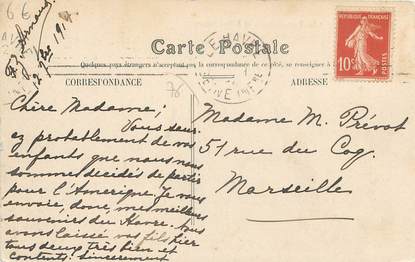 66
Carte Postale
Tous pays étrangers n'acceptent pas la correspondance au recto, se renseigner à
CORRESPONDANCE
ADRESSE
LE HAVRE
REPUBLIQUE FRANÇAISE
10c
POSTES
76
Chère Madame;
Vous sau-
ez probablement de vos
enfants que nous nous
somme décidés de partir
pour l'Amerique. Je vous
envoie, donc, mes meilleurs
souvenirs du Havre. Nous
avons laissé vos fils hier
tous deux très bien et
contents. Sincerement
Madame M. Prévot
51 rue du Coq
Marseille